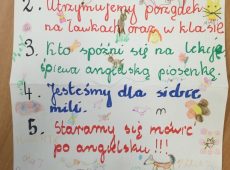 2. Utrzymujemy porządek
na ławkach oraz w klasie
3. Kto spóźni się na lekcje
śpiewa angielską piosenkę.
4. Jesteśmy dla siebie
mili.
5. Staramy się mówić
po angielsku !!!